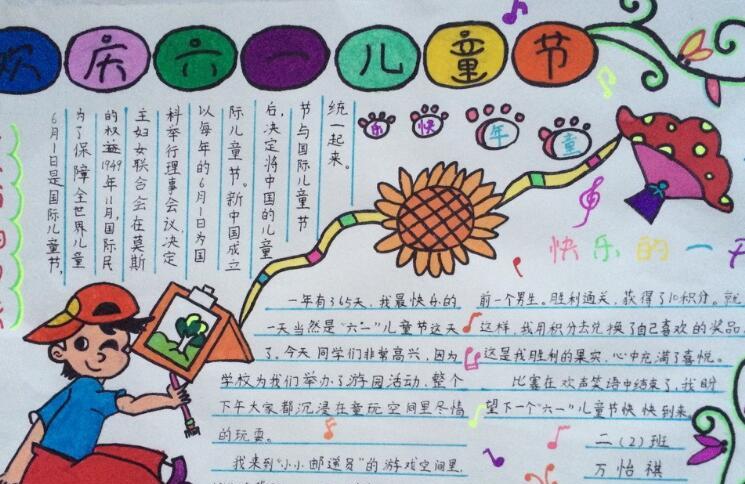 欢庆六一儿童节
6月1日是国际儿童节,
为了保障全世界儿童
的权益1949年11月,国际民
主妇女联合会在莫斯
科举行理事会议,决定
以每年的6月1日为国
际儿童节。新中国成立
后,决定将中国的儿童
节与国际儿童节
统一起来。
乐快年童
快乐的一天
一年有365天,我最快乐的
一天当然是“六一”儿童节这天
了。今天同学们非常高兴,因为
学校为我们举办了游园活动,整个
下午大家都沉浸在童玩空间里尽情
的玩耍。
我来到“小小邮递员”的游戏空间里,
前一个男生。胜利通关,获得了10积分。就
这样,我用积分去兑换了自己喜欢的奖品
这是我胜利的果实,心中充满了喜悦。
比赛在欢声笑语中结束了,我盼
望下一个“六一”儿童节快快到来。
二(2)班
万怡祺